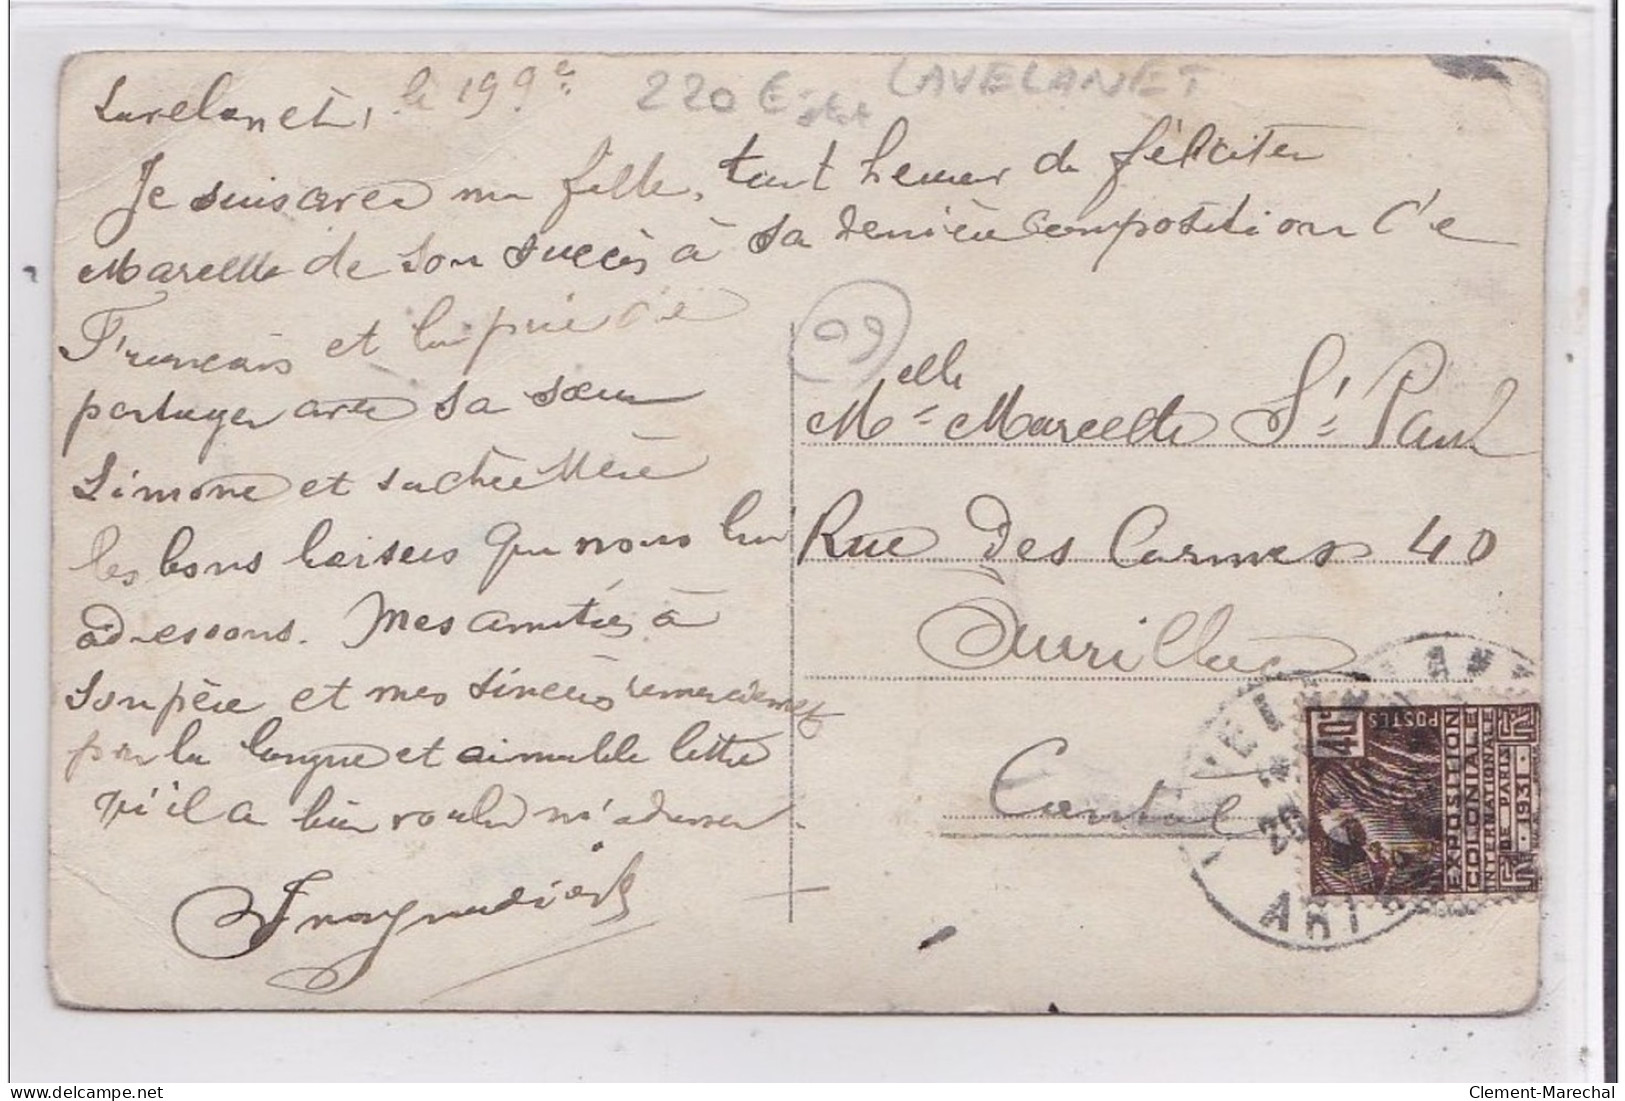 Lavelanet, le 19 9e
220 €
LAVELANET
Je suis avec ma fille, tout heureux de féliciter
Marcelle de son succès à sa dernière composition de
Français et lui prie de
partager avec sa sœur
Simone et sa chère Mère
les bons baisers que nous lui
adressons. Mes amitiés à
son père et mes sincères remerciements
pour la longue et aimable lettre
qu'il a bien voulu m'adresser.
99
Melle Marcelle St Paul
Rue Des Carmes 40
Aurillac
Cantal
40c
POSTES
EXPOSITION
COLONIALE
INTERNATIONALE
DE PARIS
1931
delcampe.net
Clement-Marechal